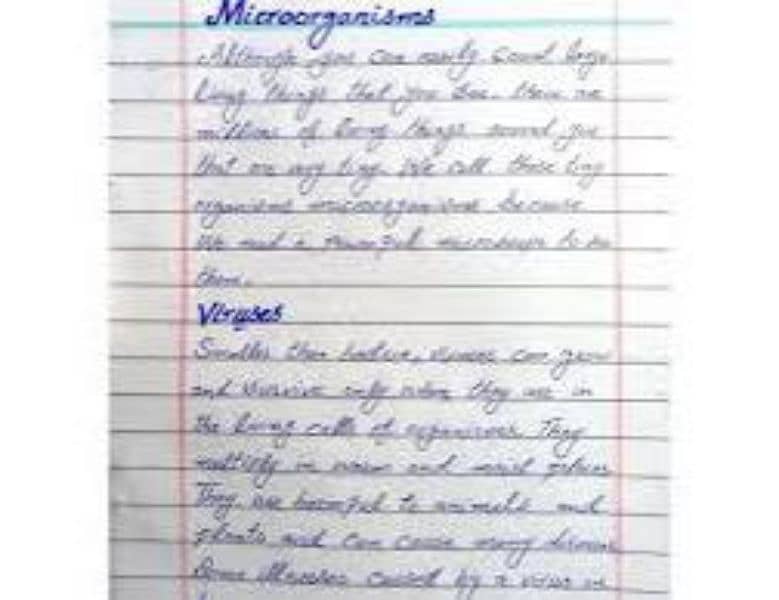 Microorganisms
Although you can easily count large
living things that you see. there are
millions of living things around you
that are very tiny. We call these tiny
organisms microorganisms because
We need a powerful microscope to see
them.
Viruses
Smaller than bacteria, viruses can grow
and survive only when they are in
the living cells of organisms. They
multiply in warm and moist places
They are harmful to animals and
plants and can cause many diseases
Some illnesses caused by a virus are